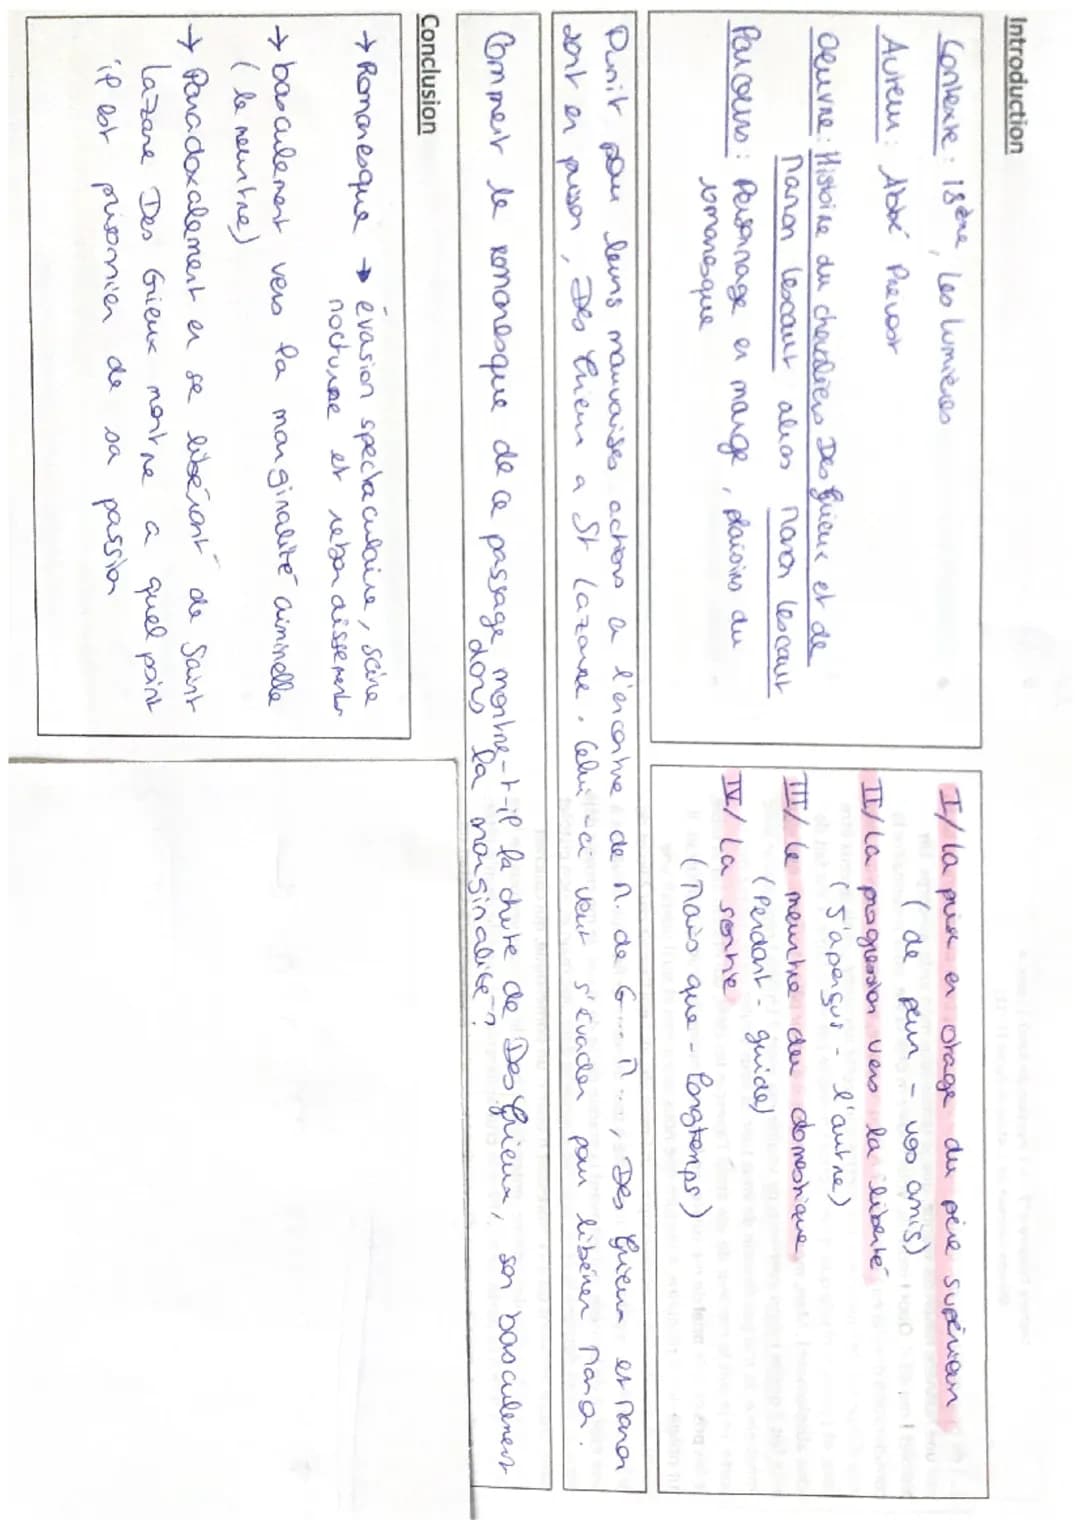 Introduction
Contexte : 18ème, Les Lumières
Auteur : Abbé Prévost
Oeuvre : Histoire du chevaliers Des Grieux et de
Manon Lescaut alias Manon Lescaut
Parcours : Personnage en marge, plaisirs du
romanesque
I/ La prise en otage du père supérieur
(de peur - vos amis)
II/ La progression vers la liberté
(J'aperçus - l'autre)
III/ Le meurtre du domestique
(Pendant - guide)
IV/ La sortie
(Mais que - Longtemps)
Punit pour leurs mauvaises actions à l'encontre de M. de G... M..., Des Grieux et Manon
sont en prison, Des Grieux a St Lazare. Celui-ci veut s'évader pour libérer Manon.
Comment le romanesque de ce passage montre-t-il la chute de Des Grieux, son basculement
dans la marginalité ?
Conclusion
→ Romanesque → évasion spectaculaire, scène
nocturne et rebondissements
→ basculement vers la marginalité criminelle
(le meurtre)
→ Paradoxalement en se libérant de Saint
Lazare Des Grieux montre a quel point
il est prisonnier de sa passion